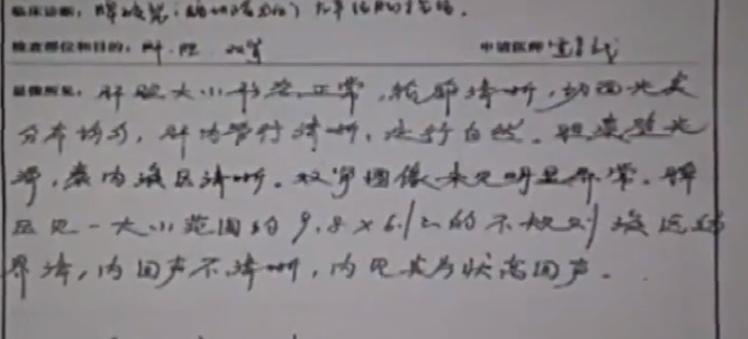 临床诊断：
检查部位和目的：肝.胆 双肾 申请医师
显像所见：肝脏大小形态正常，轮廓清晰，切面光点
分布均匀，肝内管行清晰，走行自然。胆囊壁光
滑，囊内液区清晰。双肾图像未见明显异常。脾
区见一大小范围约9.8×6.1㎝的不规则液区
界清，内回声不清晰，内见 状高回声。